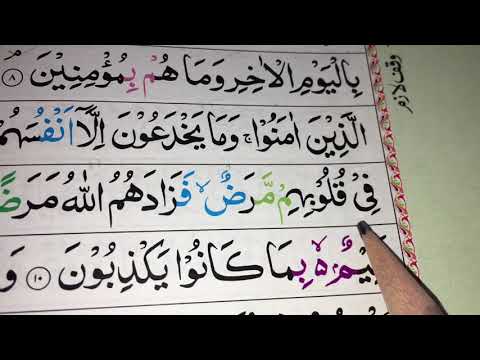 بِالْيَوْمِ الْاٰخِرِ وَمَا هُمْ بِمُؤْمِنِيْنَ ۘ ﴿٨﴾
وقف لازم
الَّذِيْنَ اٰمَنُوْا ۚ وَمَا يَخْدَعُوْنَ اِلَّاۤ اَنْفُسَهُمْ
فِيْ قُلُوْبِهِمْ مَّرَضٌ ۙ فَزَادَهُمُ اللّٰهُ مَرَضًا
بِمَا كَانُوْا يَكْذِبُوْنَ ﴿١٠﴾ وَ